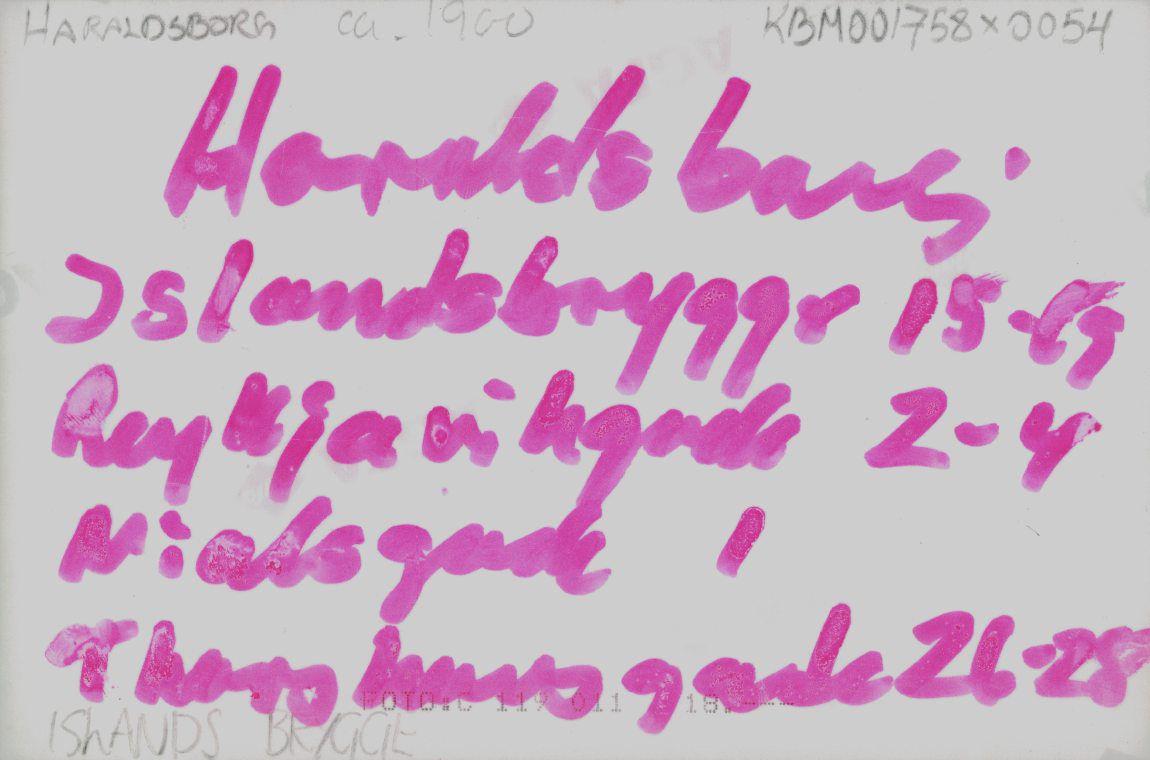 HARALDSBORG ca. 1900 KBM001758x0054
Haraldsborg.
Islandsbrygge 15-19
Reykjaviksgade 2-4
Nielsgade 1
Thorshavnsgade 26-28
FOTO:C 119 011 18.----
ISLANDS BRYGGE